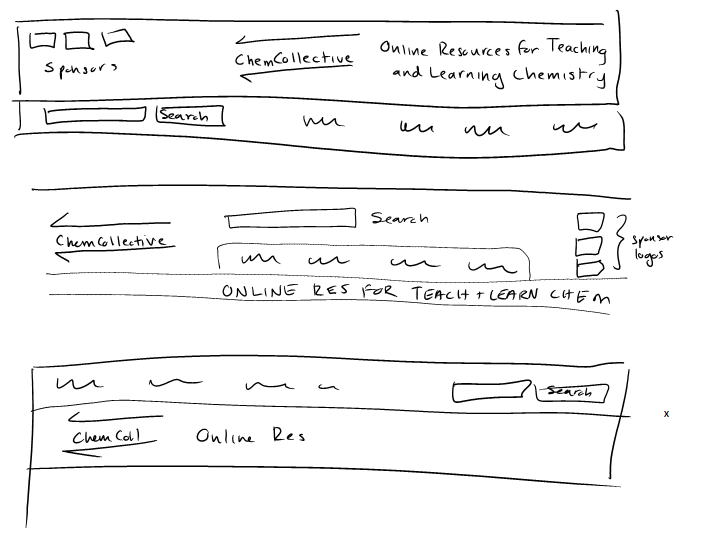 Sponsors
ChemCollective
Online Resources for Teaching
and Learning Chemistry
Search
ChemCollective
Search
Sponsor
logos
ONLINE RES FOR TEACH + LEARN CHEM
Search
x
ChemColl
Online Res